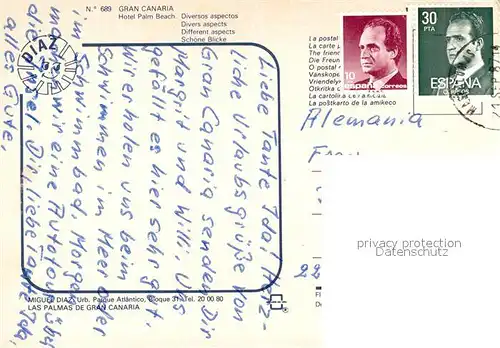 N.° 689 GRAN CANARIA
Hotel Palm Beach. Diversos aspectos
Divers aspects
Different aspects
Schöne Blicke
DIAZ
La postal
La carte
The friend
Die Freun
O postal
Vänskope
Vriendely
Otkritka
La cartolina
La poŝtkarto de la amikeco
10
España correos
30
PTA
ESPAÑA
CORREOS
Alemania
Liebe Tante Ida! Herz-
liche Urlaubsgrüße von
Gran Canaria senden Dir
Margid und Willi. Uns
gefällt es hier sehr gut.
Wir erholen uns beim
Schwimmen im Meer oder
im Schwimmbad. Morgen
machen wir eine Autotour über
die Insel. Dir, liebe Tante Ida,
alles Gute,
privacy protection
Datenschutz
22
MIGUEL DIAZ, Urb. Parque Atlántico, Bloque 31, Tel. 20 00 80
LAS PALMAS DE GRAN CANARIA